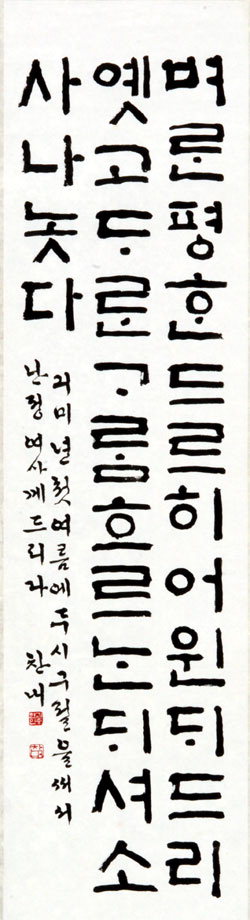 벼ᄅᆞᆫ평ᄒᆞᆫ드르히어윈ᄃᆡ드리
옛고ᄃᆞᄅᆞᆫᄀᆞᄅᆞᆷ흐르ᄂᆞᆫᄃᆡ셔소
사나놋다
긔미년첫여름에두시구절을써서
난정여사께드리다 찬내